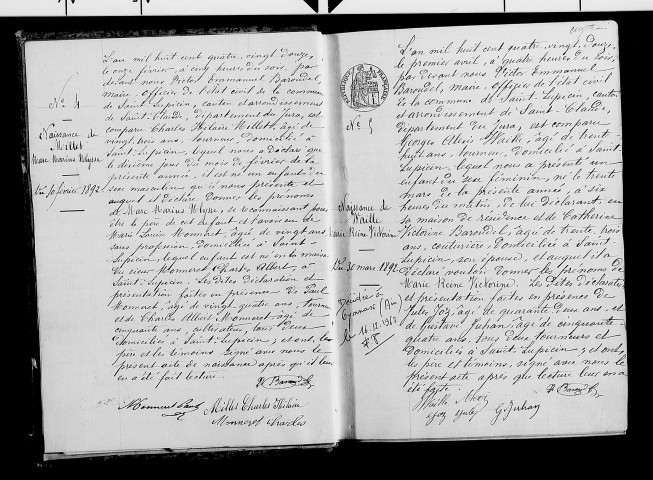 N° 4
Naissance de
Millet
Marc Marius Ulysse
Du 10 février 1892
L'an mil huit cent quatre-vingt douze,
le onze février, à cinq heures du soir, par
devant nous Victor Emmanuel Barondel,
maire, officier de l'état civil de la commune
de Saint-Lupicin, canton et arrondissement
de Saint-Claude, département du Jura, est
comparu Charles Hilaire Millet, âgé de
vingt trois ans, tourneur, domicilié à
Saint-Lupicin, lequel nous a déclaré que
le dixième jour du mois de février de la
présente année, il est né un enfant du
sexe masculin qu'il nous présente et
auquel il déclare donner les prénoms
de Marc Marius Ulysse, se reconnaissant pour
être le père de cet enfant et l'avoir eu de
Marie Louise Monneret, âgée de vingt ans
sans profession, domiciliée à Saint-
Lupicin, lequel enfant est né en la maison
du sieur Monneret Charles Albert, à
Saint-Lupicin. Les dites déclaration et
présentation faites en présence de Paul
Monneret, âgé de vingt quatre ans, tourneur
et de Charles Albert Monneret, âgé de
cinquante ans, cultivateur, tous deux
domiciliés à Saint-Lupicin; et ont, les
père et les témoins signé avec nous le
présent acte de naissance après qu'il leur
en a été fait lecture.
Monneret Paul
Millet Charles Hilaire
Monneret Charles
RÉPUBLIQUE FRANÇAISE
N° 5
Naissance de
Waille
Marie Reine Victorine
Du 30 mars 1892
Décédée à
le 16.12.1963
L'an mil huit cent quatre-vingt-douze,
le premier avril, à quatre heures du soir,
par devant nous Victor Emmanuel
Barondel, maire, officier de l'état civil
de la commune de Saint-Lupicin, canton
et arrondissement de Saint-Claude,
département du Jura, est comparu
Georges Alexis Waille, âgé de trente
huit ans, tourneur, domicilié à Saint-
Lupicin, lequel nous a présenté un
enfant du sexe féminin, né le trente
mars de la présente année, à six
heures du matin, de lui déclarant, en
sa maison de résidence et de Catherine
Victorine Barondel, âgée de trente trois
ans, couturière, domiciliée à Saint-
Lupicin, son épouse, et auquel il a
déclaré vouloir donner les prénoms de
Marie Reine Victorine. Les dites déclaration
et présentation faites en présence de
Jules Joz, âgé de quarante deux ans, et
de Gustave Juhan, âgé de cinquante-
quatre ans, tous deux tourneurs et
domiciliés à Saint-Lupicin; et ont,
les père et témoins, signé avec nous le
présent acte après que lecture leur en a
été faite.
Joz Jules
G Juhan